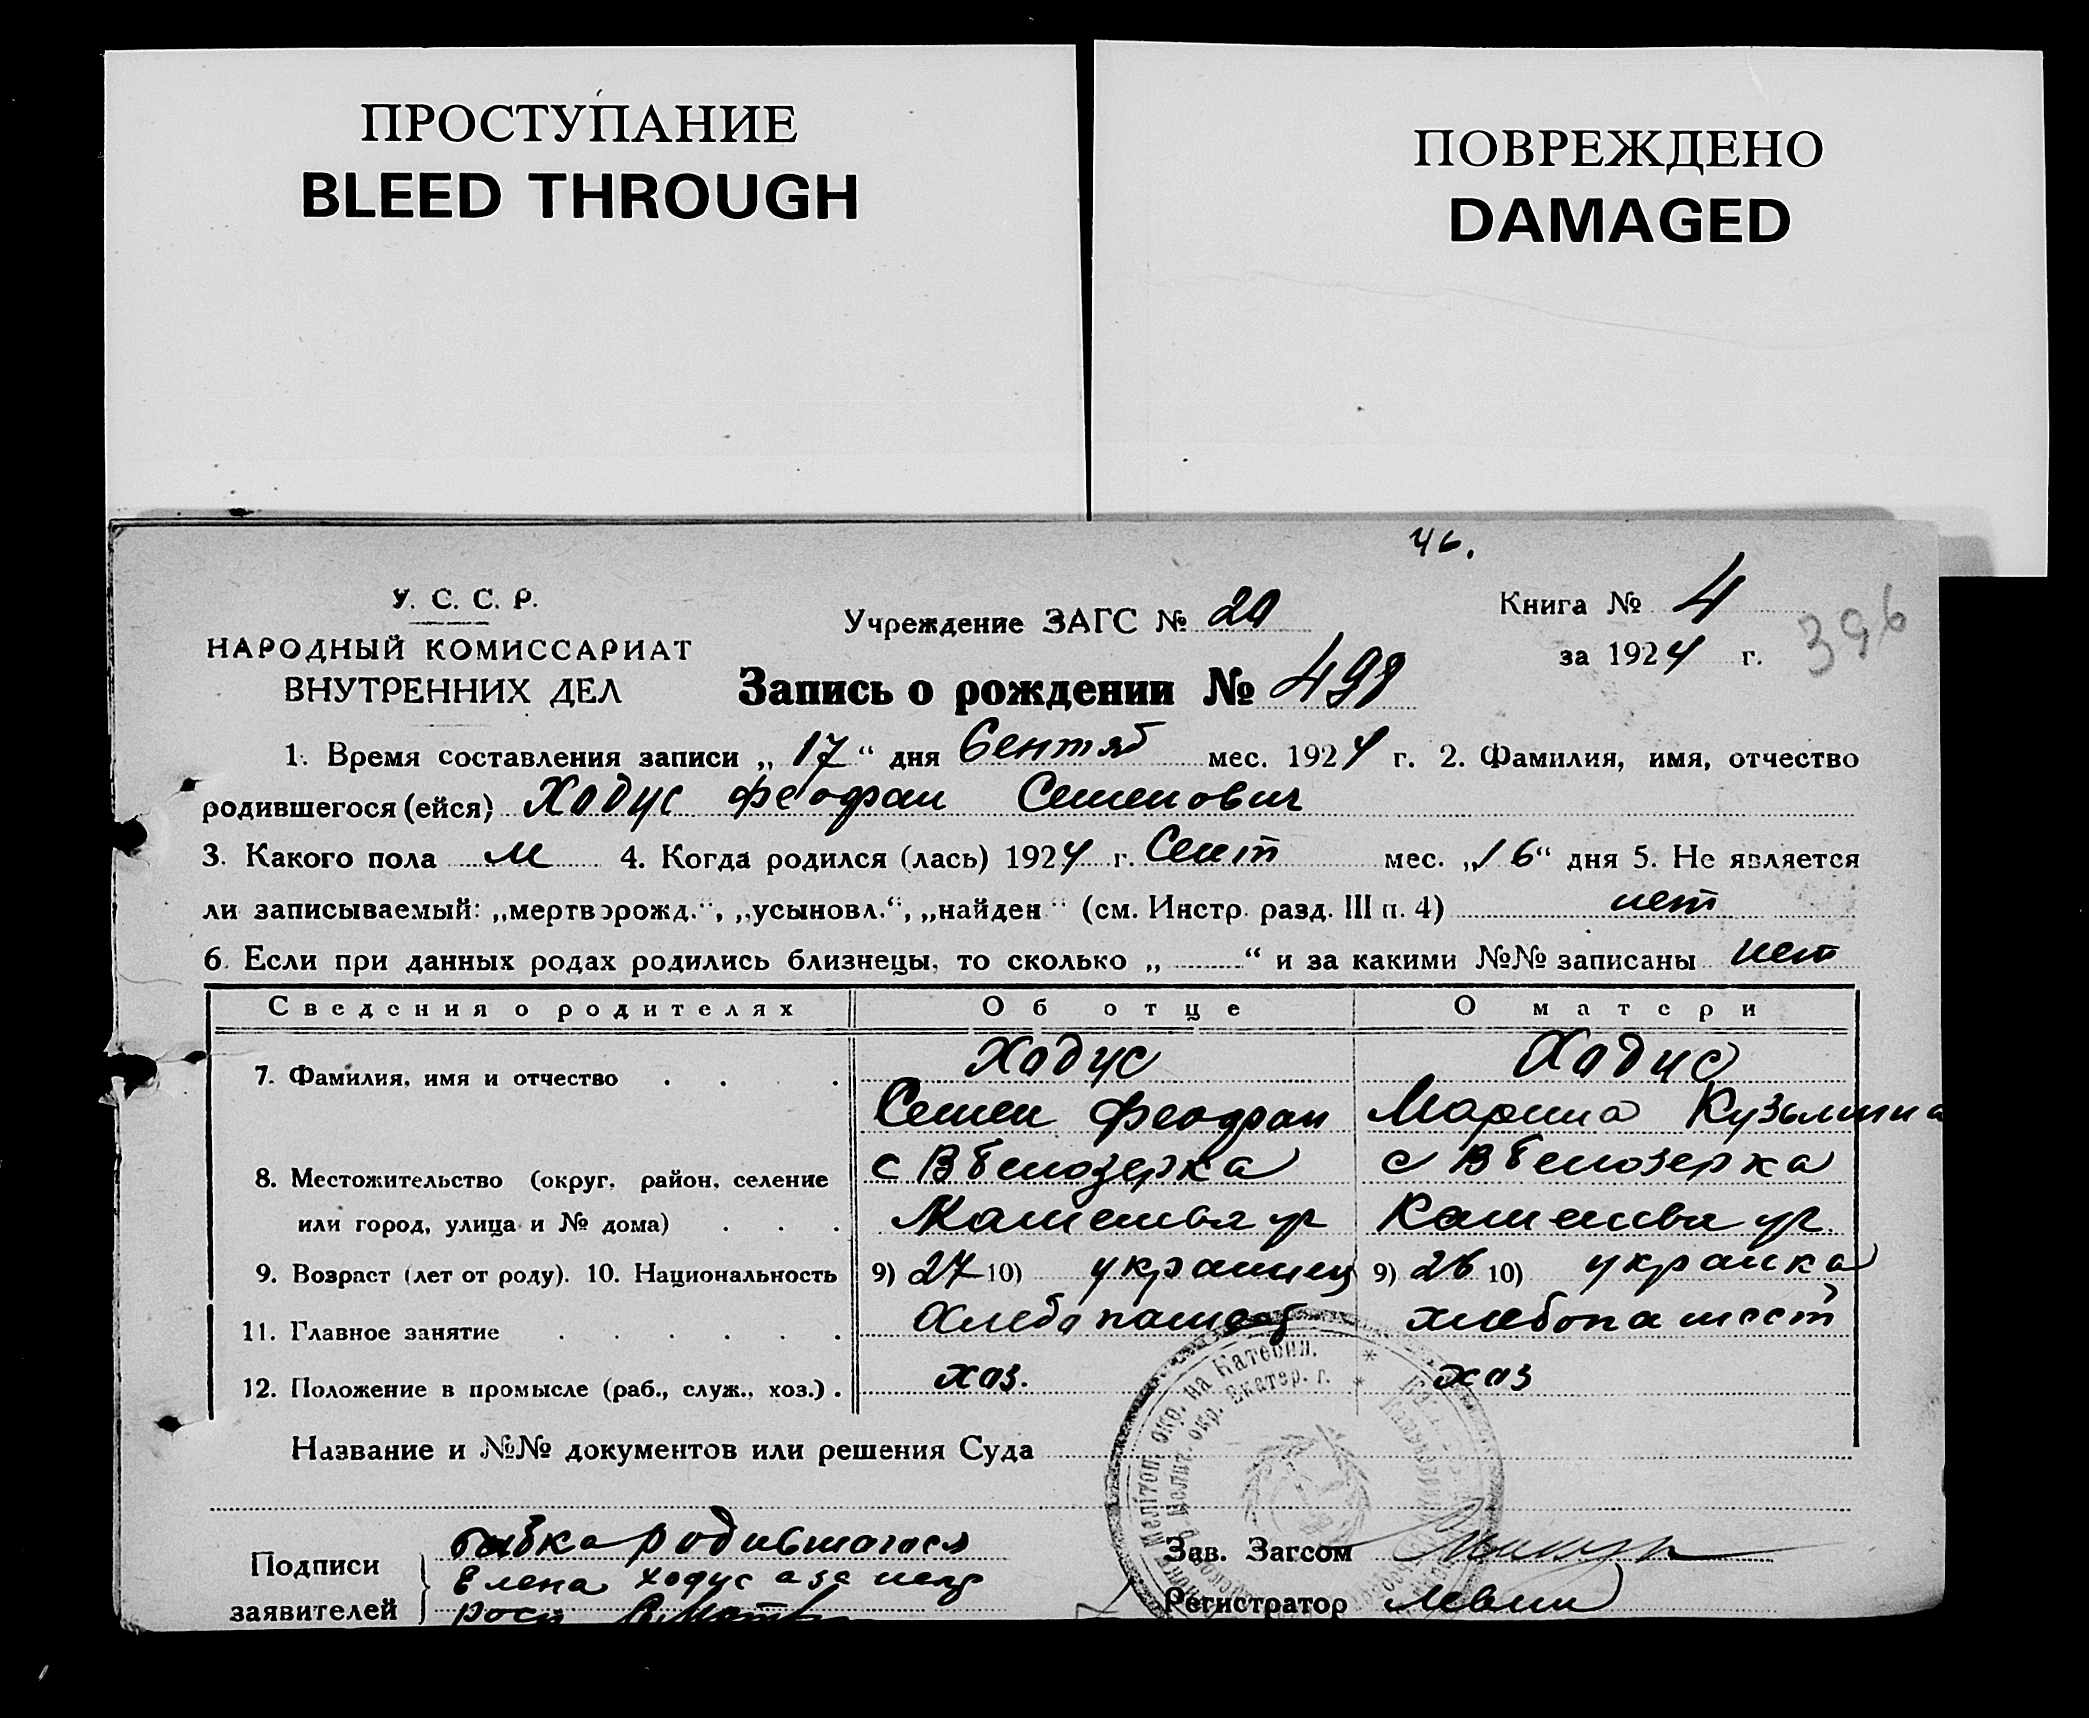 ПРОСТУПАНИЕ
BLEED THROUGH
ПОВРЕЖДЕНО
DAMAGED
46.
У. С. С. Р.
НАРОДНЫЙ КОМИССАРИАТ
ВНУТРЕННИХ ДЕЛ
Учреждение ЗАГС № 20
Книга № 4
за 1924 г.
396
Запись о рождении № 498
1. Время составления записи „ 17 “ дня Сентяб мес. 1924 г. 2. Фамилия, имя, отчество
родившегося (ейся) Ходус Феофан Семенович
3. Какого пола м 4. Когда родился (лась) 1924 г. Сент мес. „16“ дня 5. Не является
ли записываемый: „мертворожд.“, „усыновл.“, „найден“ (см. Инстр. разд. III п. 4) нет
6. Если при данных родах родились близнецы, то сколько „ “ и за какими №№ записаны нет
Сведения о родителях Об отце О матери
7. Фамилия, имя и отчество Ходус Ходус
Семен Феофан Марина Кузьмина
8. Местожительство (округ, район, селение с В Белозерка с В Белозерка
или город, улица и № дома)
9. Возраст (лет от роду). 10. Национальность 9) 27 10) украинец 9) 26 10) украинка
11. Главное занятие Хлебопашеств хлебопашест
12. Положение в промысле (раб., служ., хоз.) хоз. хоз
Название и №№ документов или решения Суда
Подписи бабка родившагося
Елена Ходус а за негр
заявителей
Зав. Загсом
Регистратор Левин